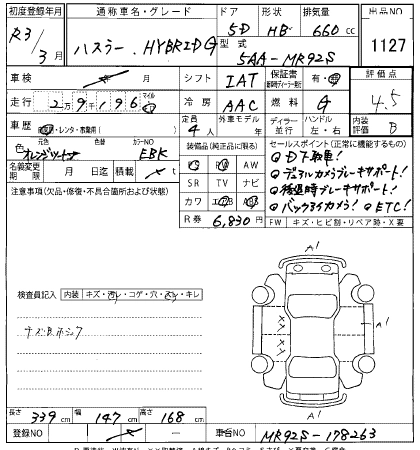 初度登録年月 通称車名・グレード ドア 形状 排気量 出品NO
R3/3月 ハスラー HYBRID G 5D HB 660 cc 1127
型式 5AA-MR92S
車検 年 月 シフト IAT 保証書 有・ 評価点 4.5
走行 2万9千196 マイル 冷房 AAC 燃料 G
車歴 ・レンタ・ 定員 4人 外車モデル 年 ディーラー 並行 ハンドル 左・右 内装評価 B
色 元色 色替 カラーNO
オレンジツートン EBK
装備品(純正品に限る) セールスポイント(正常に機能するもの)
名義変更期限 月 日迄 積載 t
PS PW AW
SR TV ナビ
カワ エアB ABS
R券 6,830円
D下取車!
デュアルカメラブレーキサポート!
後退時ブレーキサポート!
バックアイカメラ! ETC!
注意事項(欠品・修復・不具合箇所および状態)
FW キズ・ヒビ割・リペア時・X
A1
検査員記入 内装 キズ・汚レ・コゲ・穴・スレ・キレ
A1
A1
長さ 339 cm 幅 147 cm 高さ 168 cm
登録NO 車台NO MR92S-178263